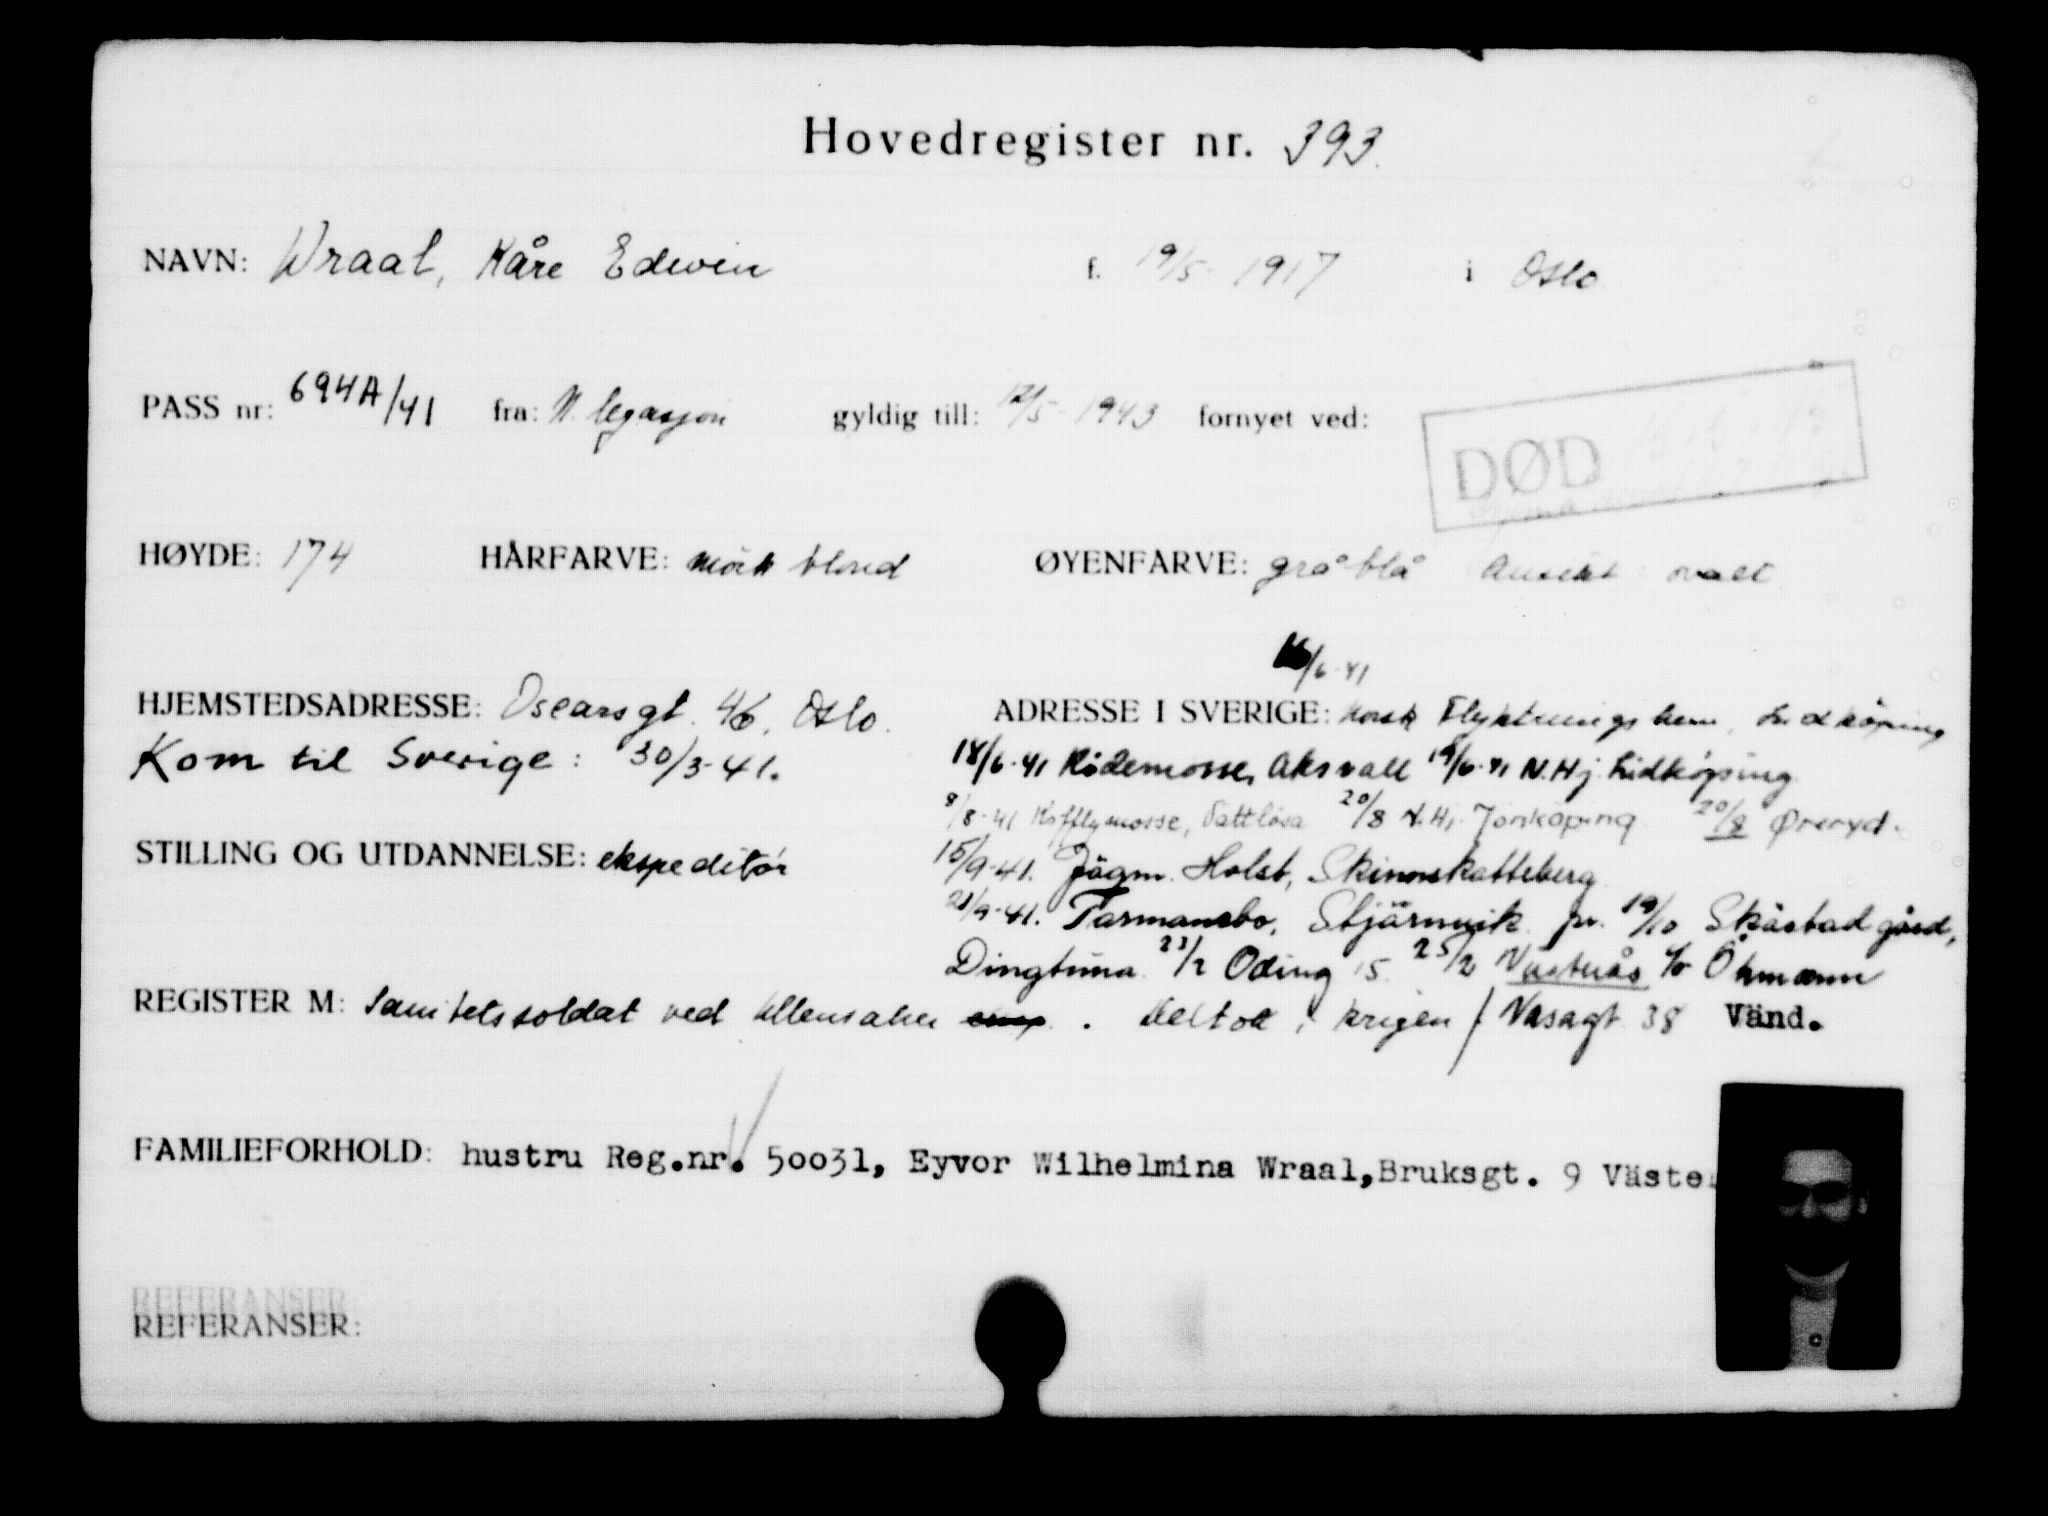 Hovedregister nr. 393.
NAVN: Wraal, Kåre Edwin f. 19/5 1917 i Oslo
PASS nr: 694A/41 fra: N. legasjon gyldig till: 12/5 1943 fornyet ved:
DØD
HØYDE: 174 HÅRFARVE: mørk blond ØYENFARVE: gråblå Ansikt: ovalt
/6-41
HJEMSTEDSADRESSE: Oscarsgt. 46, Oslo. ADRESSE I SVERIGE: Norsk Flyktningshem, Lidköping
Kom til Sverige: 30/3-41. 18/6-41 Rödemosse, Aksvall 19/6-41 N.Hj. Lidköping
8/8-41 20/8 N.Hj. Jönköping 20/8 Øreryd.
STILLING OG UTDANNELSE: ekspeditør 15/9-41. Jägm. Holst, Skinnskatteberg
21/9-41. Farmansbo, Stjärnvik pr. 19/10 Skästad gård,
Dingtuna 23/2 Oding 15 25/2 Västerås c/o Öhmann
REGISTER M: Sanitetssoldat ved Ullensaker . Deltok i krigen / Vasagt 38 Vänd.
FAMILIEFORHOLD: hustru Reg.nr. 50031, Eyvor Wilhelmina Wraal, Bruksgt. 9 Väste
REFERANSER:
REFERANSER: